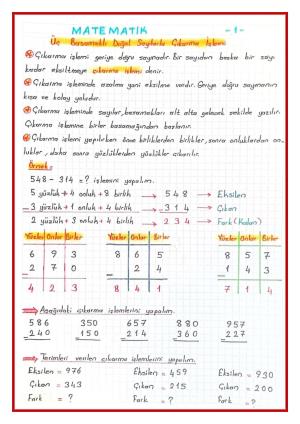 MATEMATİK -1-
Üç Basamaklı Doğal Sayılarla Çıkarma İşlemi
Çıkarma işlemi geriye doğru saymadır. Bir sayıdan başka bir sayı
kadar eksiltmeye çıkarma işlemi denir.
Çıkarma işleminde azalma yani eksilme vardır. Geriye doğru saymanın
kısa ve kolay yoludur.
Çıkarma işleminde sayılar, basamakları alt alta gelecek şekilde yazılır.
Çıkarma işlemine birler basamağından başlanır.
Çıkarma işlemi yapılırken önce birliklerden birlikler, sonra onluklardan on-
luklar, daha sonra yüzlüklerden yüzlükler çıkarılır.
Örnek:
548 - 314 = ? işlemini yapalım.
5 yüzlük + 4 onluk + 8 birlik → 548 → Eksilen
- 3 yüzlük + 1 onluk + 4 birlik → - 314 → Çıkan
2 yüzlük + 3 onluk + 4 birlik → 234 → Fark (Kalan)
Yüzler Onlar Birler Yüzler Onlar Birler Yüzler Onlar Birler
6 9 3 8 6 5 8 5 7
- 2 7 0 - 2 4 - 1 4 3
4 2 3 8 4 1 7 1 4
Aşağıdaki çıkarma işlemlerini yapalım.
586 350 657 880 957
- 240 - 150 - 214 - 360 - 227
Terimleri verilen çıkarma işlemlerini yapalım.
Eksilen = 976 Eksilen = 459 Eksilen = 930
Çıkan = 343 Çıkan = 215 Çıkan = 200
Fark = ? Fark = ? Fark = ?